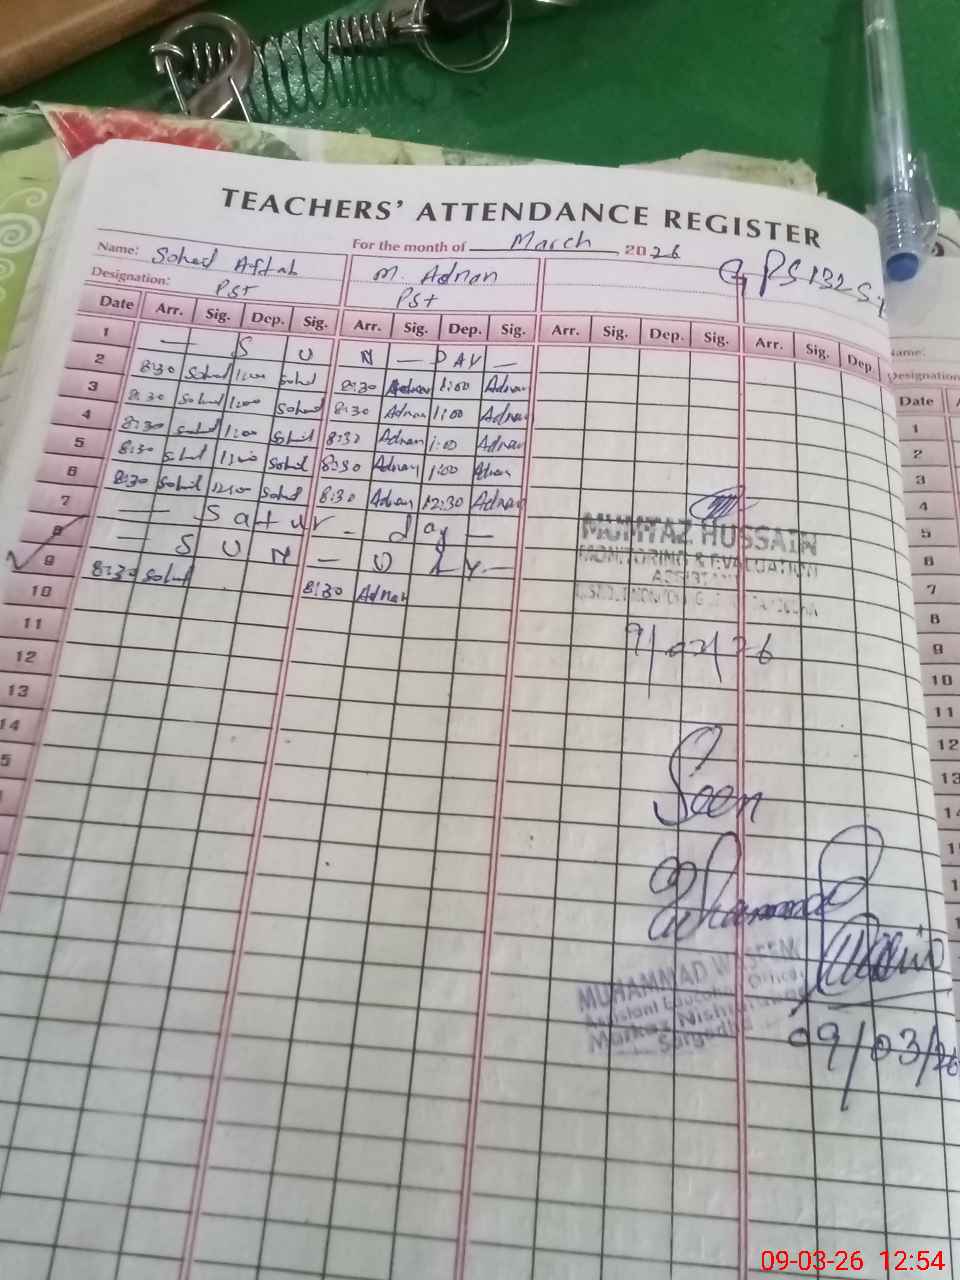 TEACHERS' ATTENDANCE REGISTER
For the month of March 2026
Name: Sohail Aftab M. Adnan GPS 132 S.
Designation: PST PST
Date Arr. Sig. Dep. Sig. Arr. Sig. Dep. Sig. Arr. Sig. Dep. Sig. Arr. Sig. Dep.
1 — S U N — D A Y —
2 8:30 Sohail 1:00 Sohail 8:30 Adnan 1:00 Adnan
3 8:30 Sohail 1:00 Sohail 8:30 Adnan 1:00 Adnan
4 8:30 Sohail 1:00 Sohail 8:30 Adnan 1:00 Adnan
5 8:30 Sohail 1:00 Sohail 8:30 Adnan 1:00 Adnan
6 8:30 Sohail 12:00 Sohail 8:30 Adnan 12:30 Adnan
7 — S a t u r - d a y —
8 — S U N — D A Y —
9 8:30 Sohail 8:30 Adnan
10
11
12
13
14
MUMTAZ HUSSAIN
MONITORING & EVALUATION
ASSISTANT
9/03/26
Seen
Muhammad Waseem
MUHAMMAD WASEEM
Assistant Education Officer
Markaz
Sargodha
09/03/26
Name:
Designation
Date
1
2
3
4
5
6
7
8
9
10
11
12
13
14
09-03-26 12:54